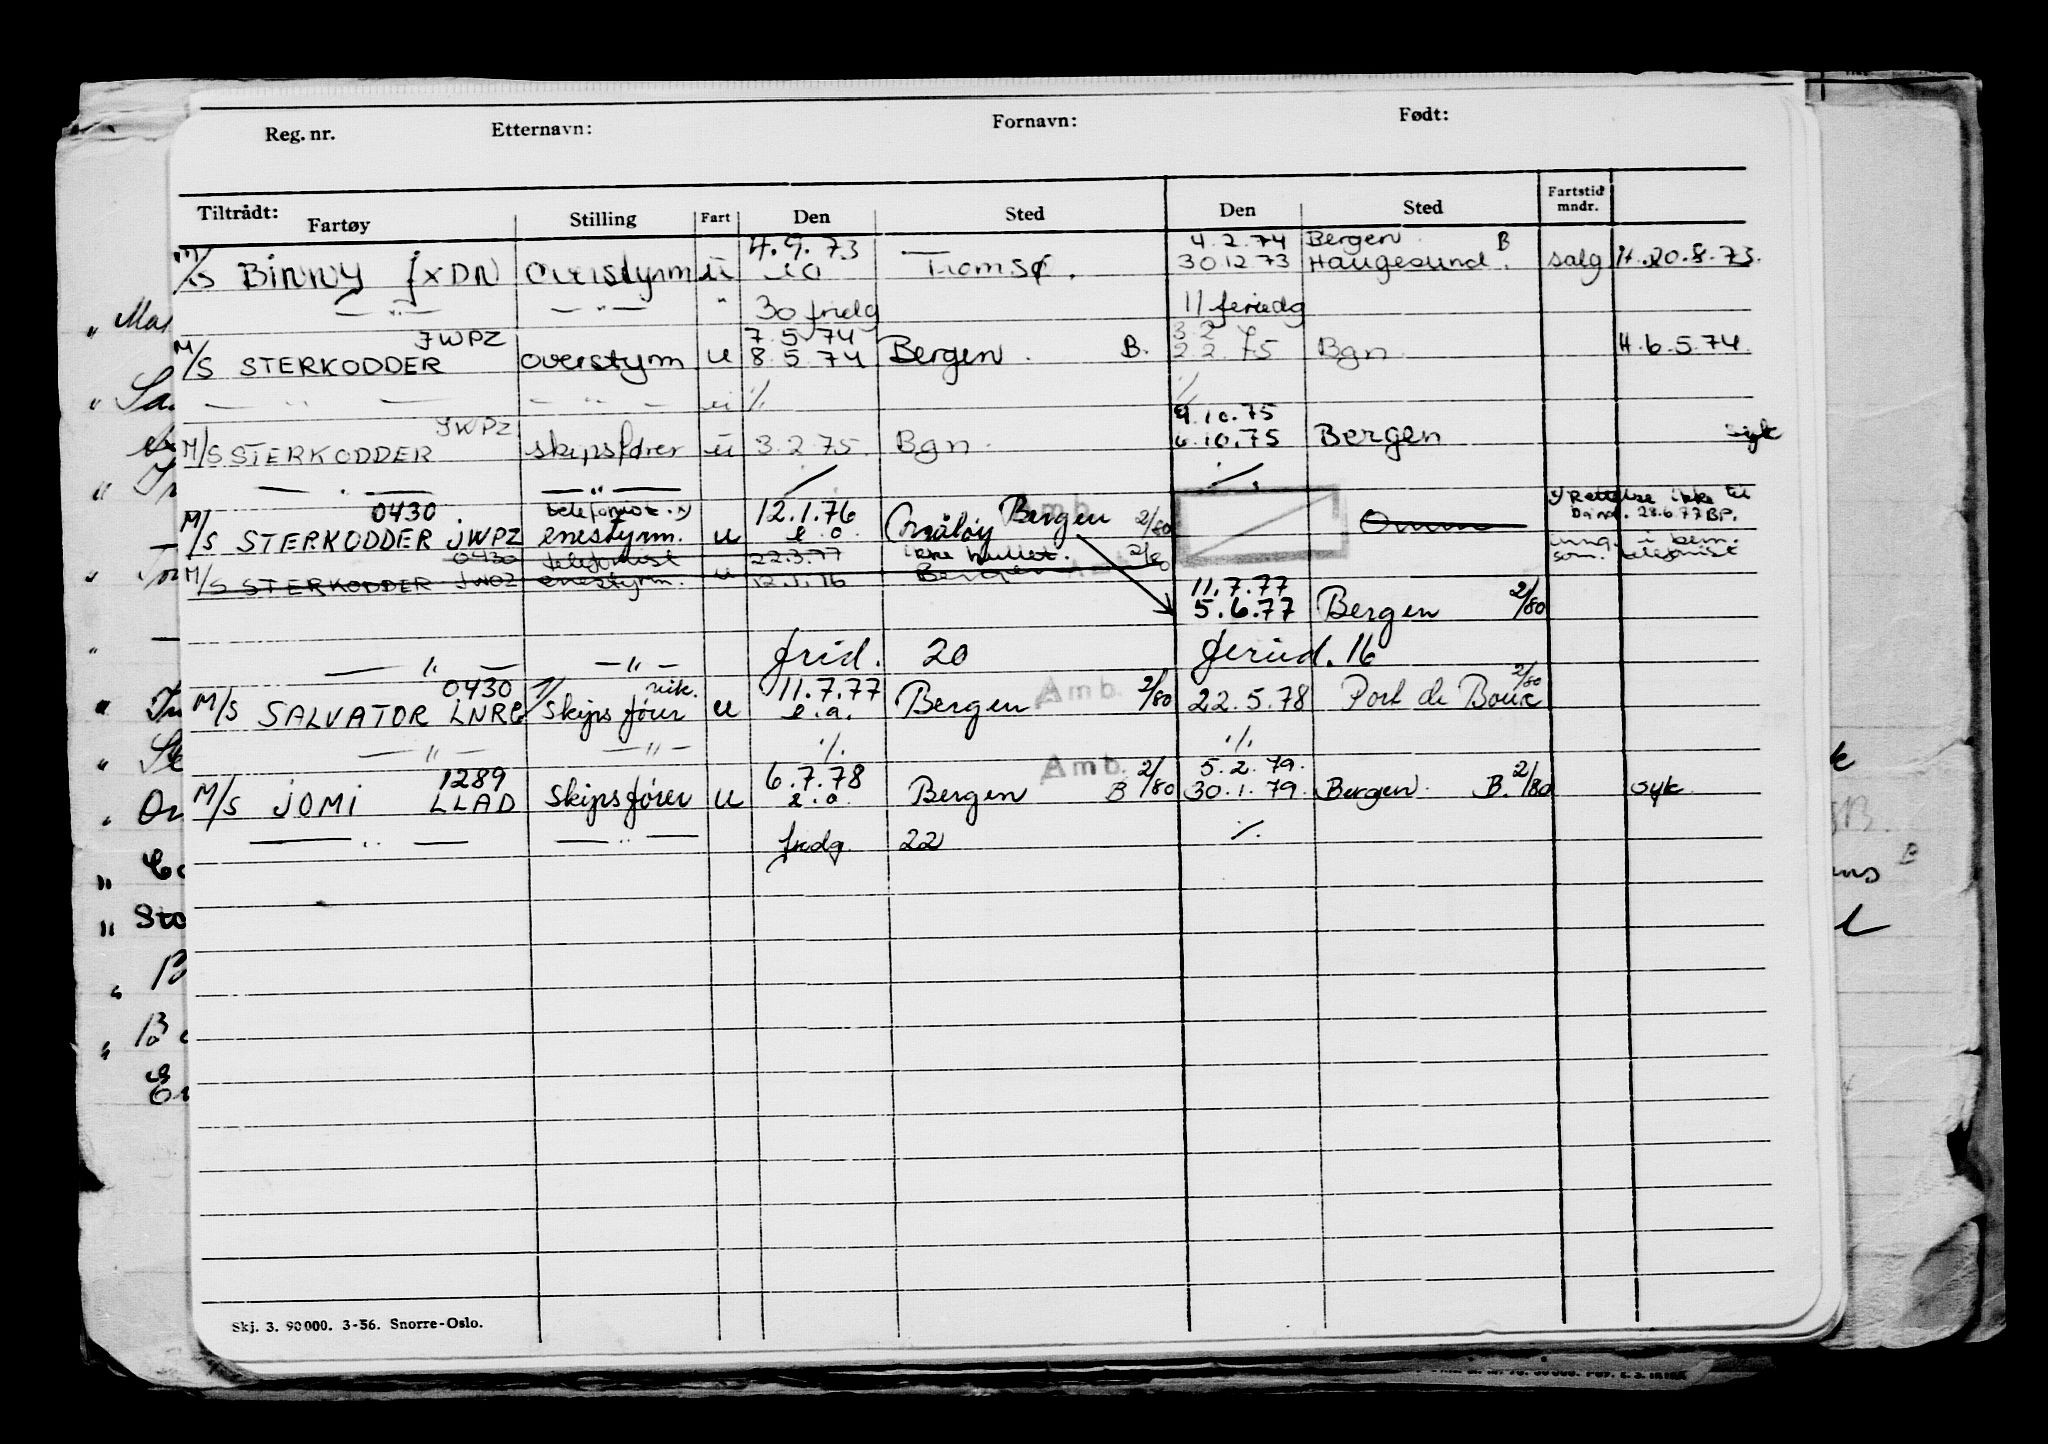 Reg. nr. Etternavn: Fornavn: Født:
Tiltrådt: Fartøy Stilling Fart Den Sted Den Sted Fartstid mndr.
4.9.73 4.2.74 Bergen B
M/S BINNY JXDN overstyrm u Tromsø. 30 12 73 Haugesund. salg H. 20.8.73.
— " — — " — " 30 fridg 11 feriedg
JWPZ 7.5.74 3.2
M/S STERKODDER overstyrm u 8.5.74 Bergen. B. 2.2.75 Bgn. H. 6.5.74
— " — — " — u ·/. ·/.
JWPZ 9.10.75
M/S STERKODDER skipsfører u 3.2.75. Bgn. 6.10.75 Bergen syk
— " — — " — ·/. ·/.
0430 telefonist. x) 12.1.76 Bergen Amb. 2/80 x) Rettelse ikke til
M/S STERKODDER JWPZ enestyrm. u e.o. Måløy Omm 28.6.77 BP.
0430 telefonist 22.3.77 ikke hullet. 2/80 som telefonist
M/S STERKODDER JWPZ enestyrm. u 12.1.76 Bergen
11.7.77
5.6.77 Bergen 2/80
— " — — " — frid. 20 feried. 16
0430 vik. 11.7.77 Amb. 2/80 2/80
M/S SALVATOR skipsfører u e.a. Bergen 22.5.78 Port de Bouc
— " — — " — ·/. ·/.
1289 6.7.78 Amb. 2/80 5.2.79. 2/80
M/S JOMI LLAD skipsfører u e.o. Bergen B 30.1.79. Bergen. B. syk.
— " — — " — fridg 22 ·/.
Skj. 3. 90 000. 3-56. Snorre-Oslo.